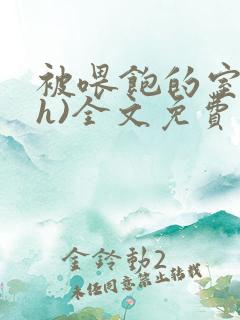 被喂飽的室
h)全文免費
金鈴動2
未经同意禁止转载